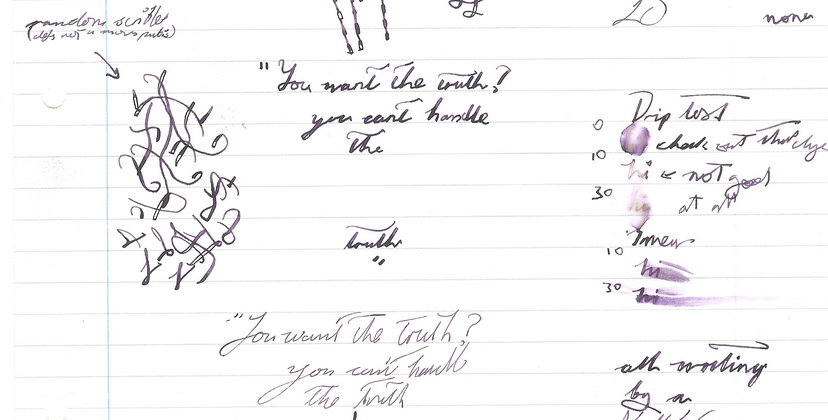 random scribble
(defs not a
20
none
"You want the truth?
you can't handle
the
truth
"
Drip test
0
check out that dye
10
hi ← not good
30
hi at all
Smear
10 hi
30 hi
"You want the truth?
you can't handle
the truth
all writing
by a